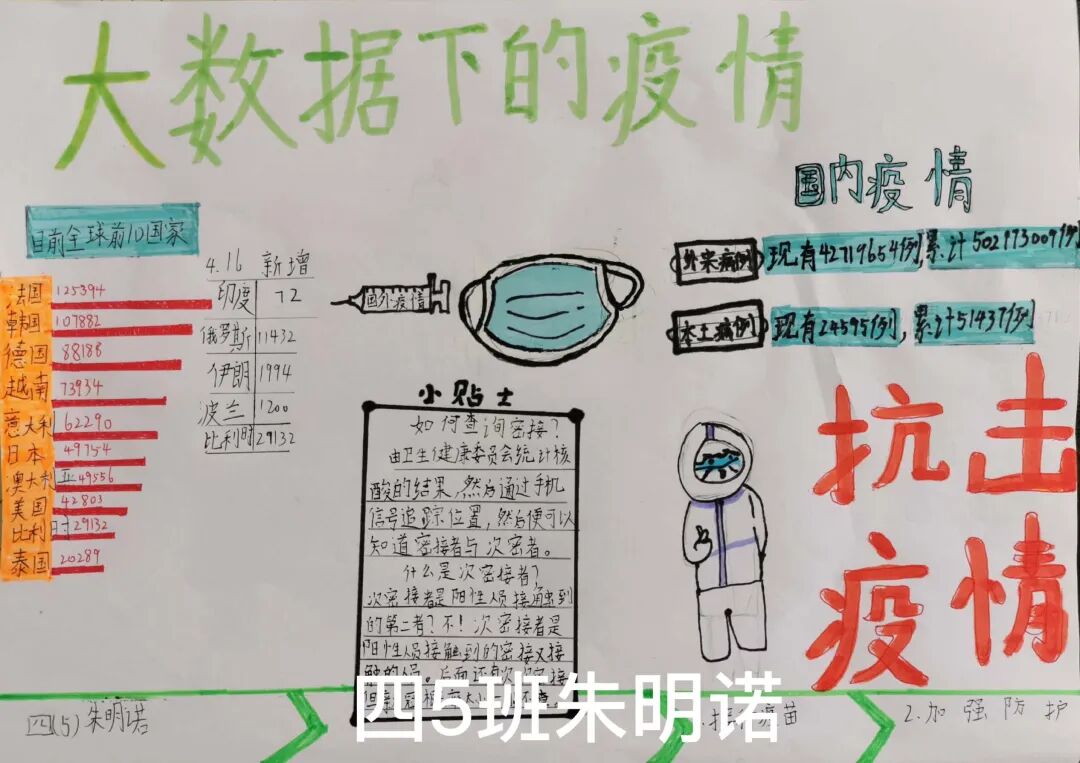 大数据下的疫情
国内疫情
外来病例 现有42719654例,累计502973009例
本土病例 现有24595例,累计51437例
目前全球前10国家
法国 125394
韩国 107882
德国 88188
越南 73934
意大利 62290
日本 49754
澳大利亚 49556
美国 42803
比利时 29132
泰国 20289
4.16 新增
印度 72
俄罗斯 11432
伊朗 1994
波兰 1200
比利时 29132
国外疫情
小贴士
如何查询密接?
由卫生健康委员会统计核
酸的结果,然后通过手机
信号追踪位置,然后便可以
知道密接者与次密者。
什么是次密接者?
次密接者是阳性人员接触到
的第二者?不!次密接者是
阳性人员接触到的密接又接
触的人员。后面还有次次密接
抗击
疫情
四(5) 朱明诺
四5班朱明诺
疫苗
2.加强防护